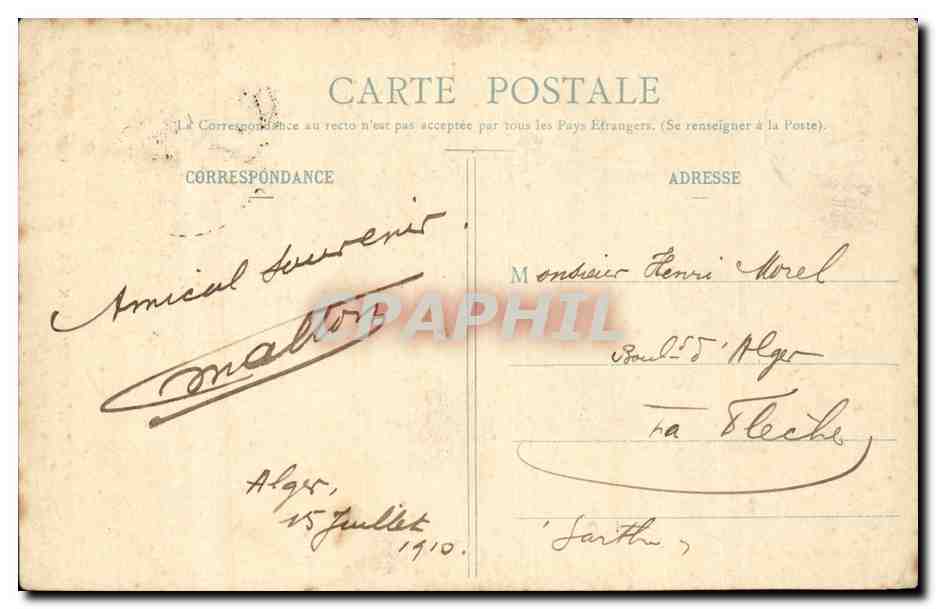 CARTE POSTALE
La Correspondance au recto n'est pas acceptée par tous les Pays Étrangers. (Se renseigner à la Poste).
CORRESPONDANCE
Amical souvenir.
Malton
Alger,
15 Juillet
1910.
ADRESSE
Monsieur Henri Morel
Boul-rd d'Alger
La Flèche
Sarthe
CPAPHIL